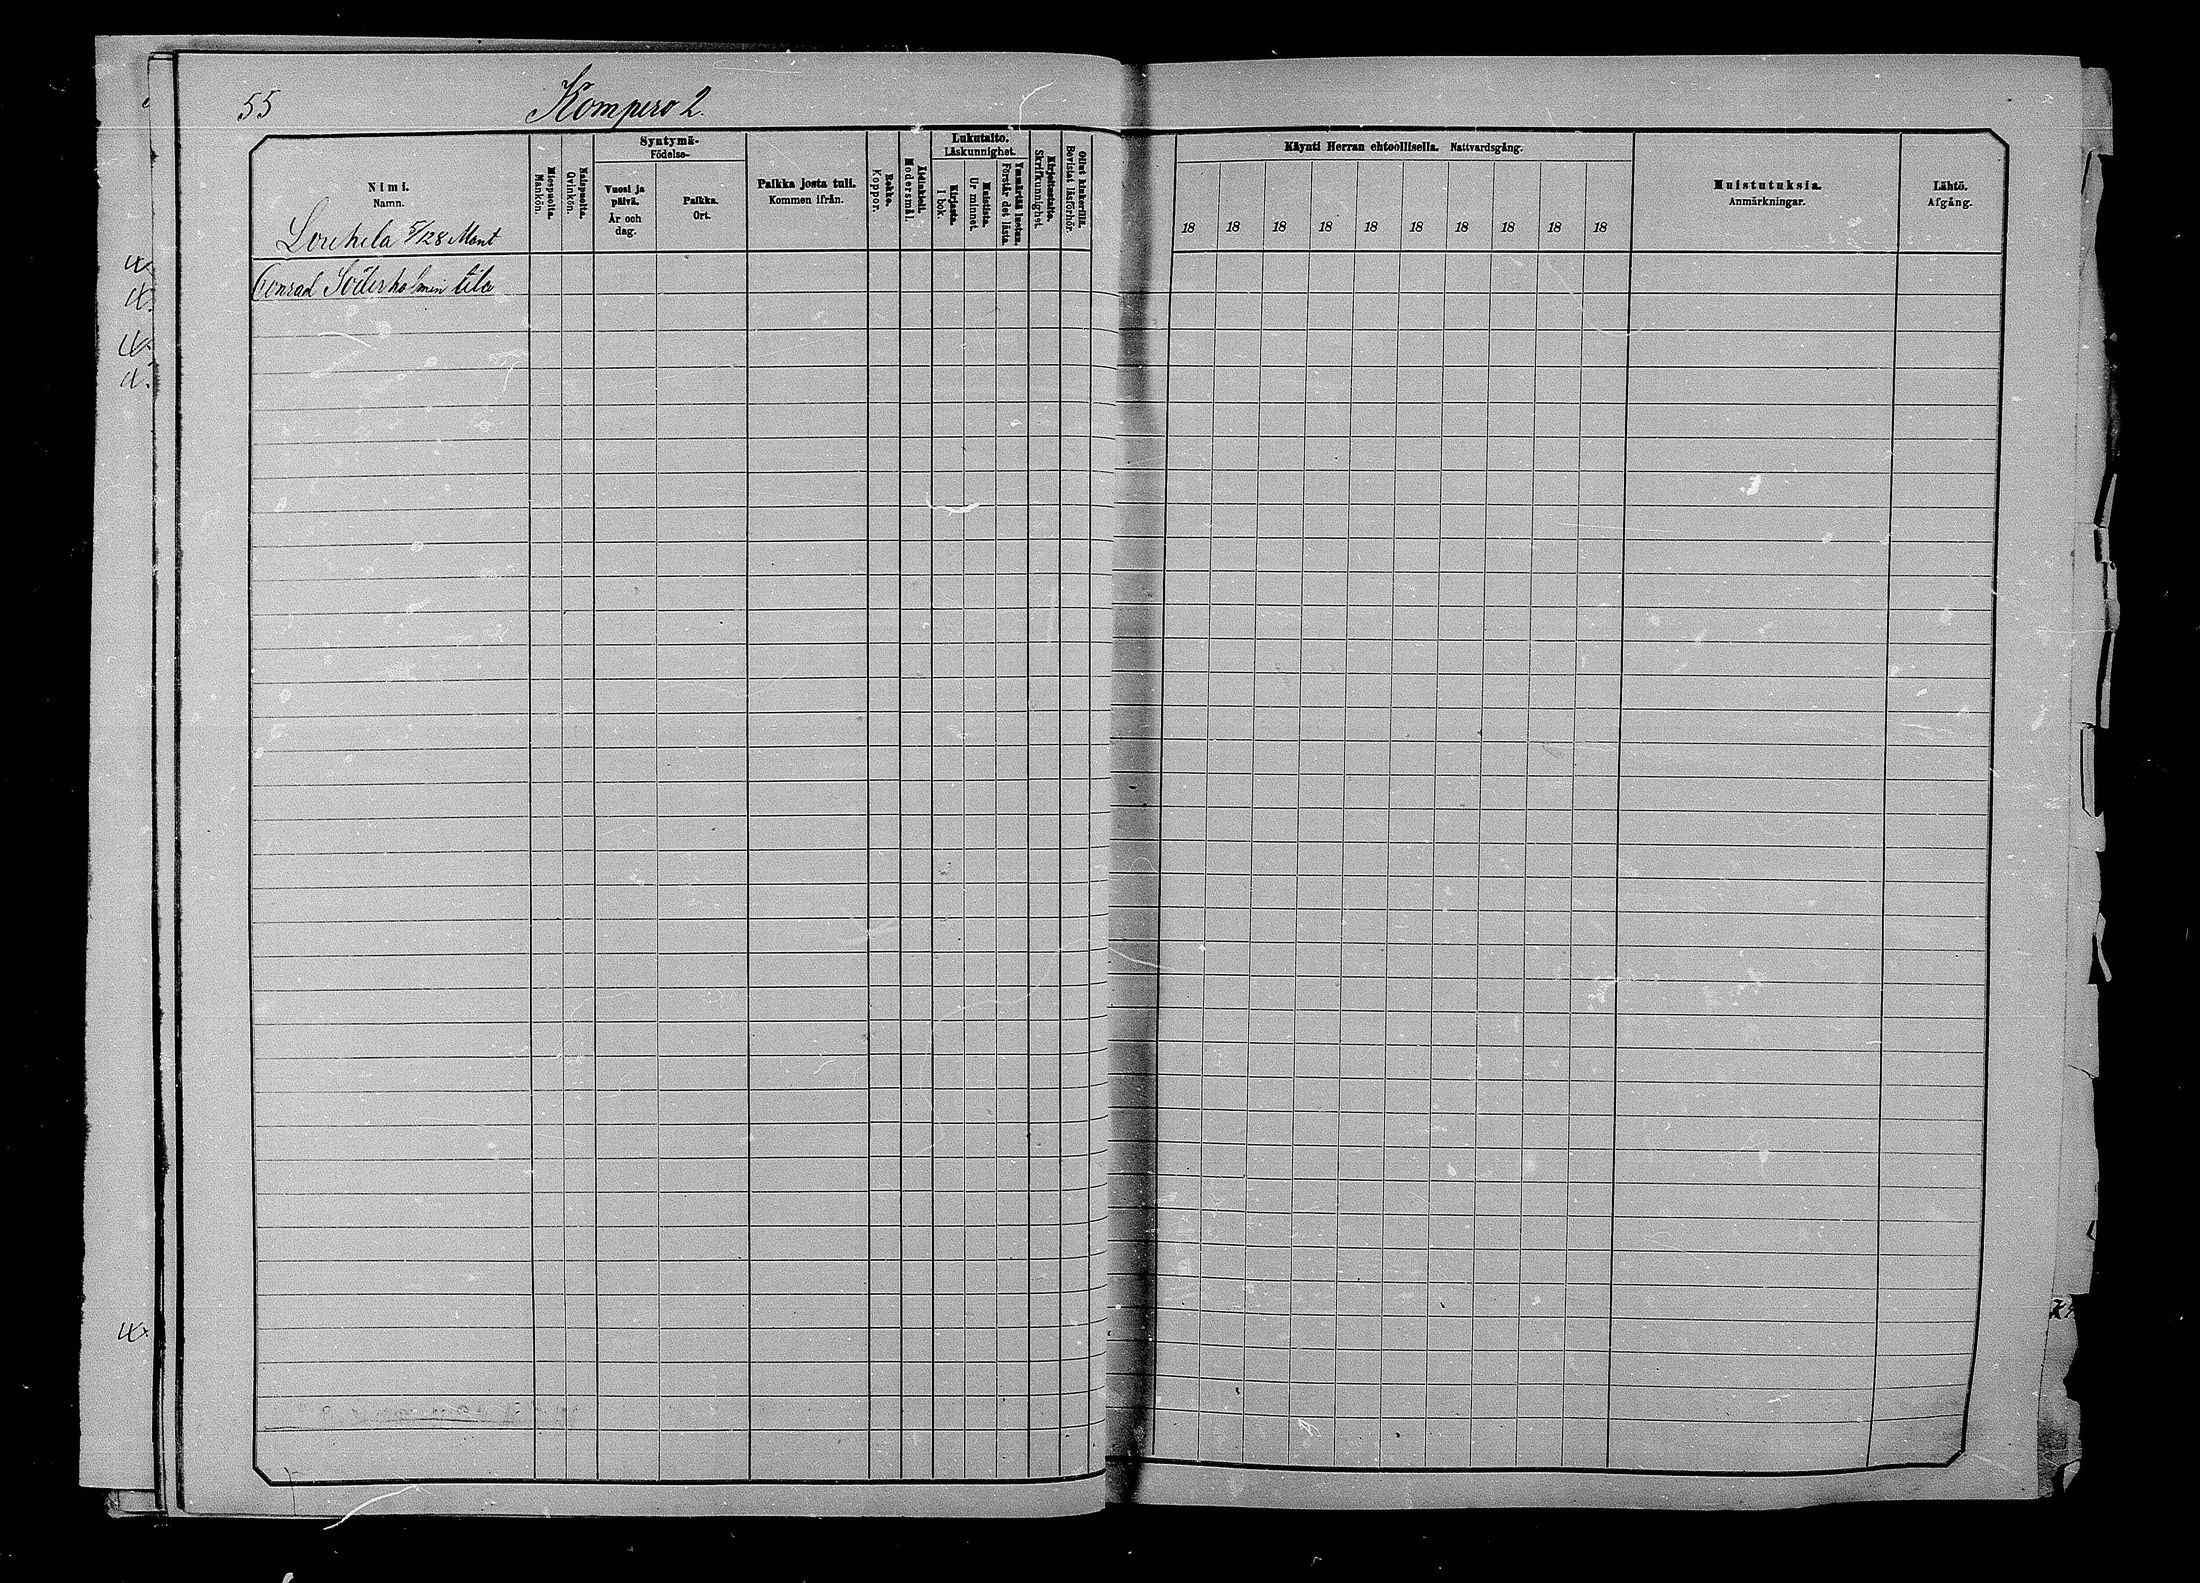 55 Kompero 2.
Nimi.
Namn.
Louhela 5/28 Mant
Miespuolta.
Mankön.
Naispuolta.
Qvinkön.
Syntymä-
Födelse-
Vuosi ja
päivä.
År och
dag.
Paikka.
Ort.
Paikka josta tuli.
Kommen ifrån.
Rokko.
Koppor.
Äidinkieli.
Modersmål.
Lukutaito.
Läskunnighet.
Kirjasta.
I bok.
Muistista.
Ur minnet.
Ymmärtää luetun.
Förstår det lästa.
Kirjoitustaito.
Skrifkunnighet.
Ollut kinkerillä.
Bevistat läsförhör.
Käynti Herran ehtoollisella. Nattvardsgång.
18 18 18 18 18 18 18 18 18 18
Muistutuksia.
Anmärkningar.
Lähtö.
Afgång.
Conrad Söderholmin tila